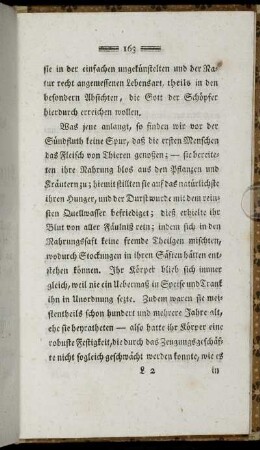 163
sie in der einfachen ungekünstelten und der Na-
tur recht angemessenen Lebensart, theils in den
besondern Absichten, die Gott der Schöpfer
hierdurch erreichen wollen.
Was jene anlangt, so finden wir vor der
Sündfluth keine Spur, daß die ersten Menschen
das Fleisch von Thieren genossen; — sie bereite-
ten ihre Nahrung blos aus den Pflanzen und
Kräutern zu; hiemit stillten sie auf das natürlichste
ihren Hunger, und der Durst wurde mit dem rein-
sten Quellwasser befriediget; dieß erhielte ihr
Blut von aller Fäulniß rein; indem sich in den
Nahrungssaft keine fremde Theilgen mischten,
wodurch Stockungen in ihren Säften hätten ent-
stehen können. Ihr Körper blieb sich immer
gleich, weil nie ein Uebermaß in Speise und Trank
ihn in Unordnung sezte. Zudem waren sie mei-
stentheils schon hundert und mehrere Jahre alt,
ehe sie heyratheten — also hatte ihr Körper eine
robuste Festigkeit, die durch das Zeugungsgeschäf-
te nicht sogleich geschwächt werden konnte, wie es
L 2 in